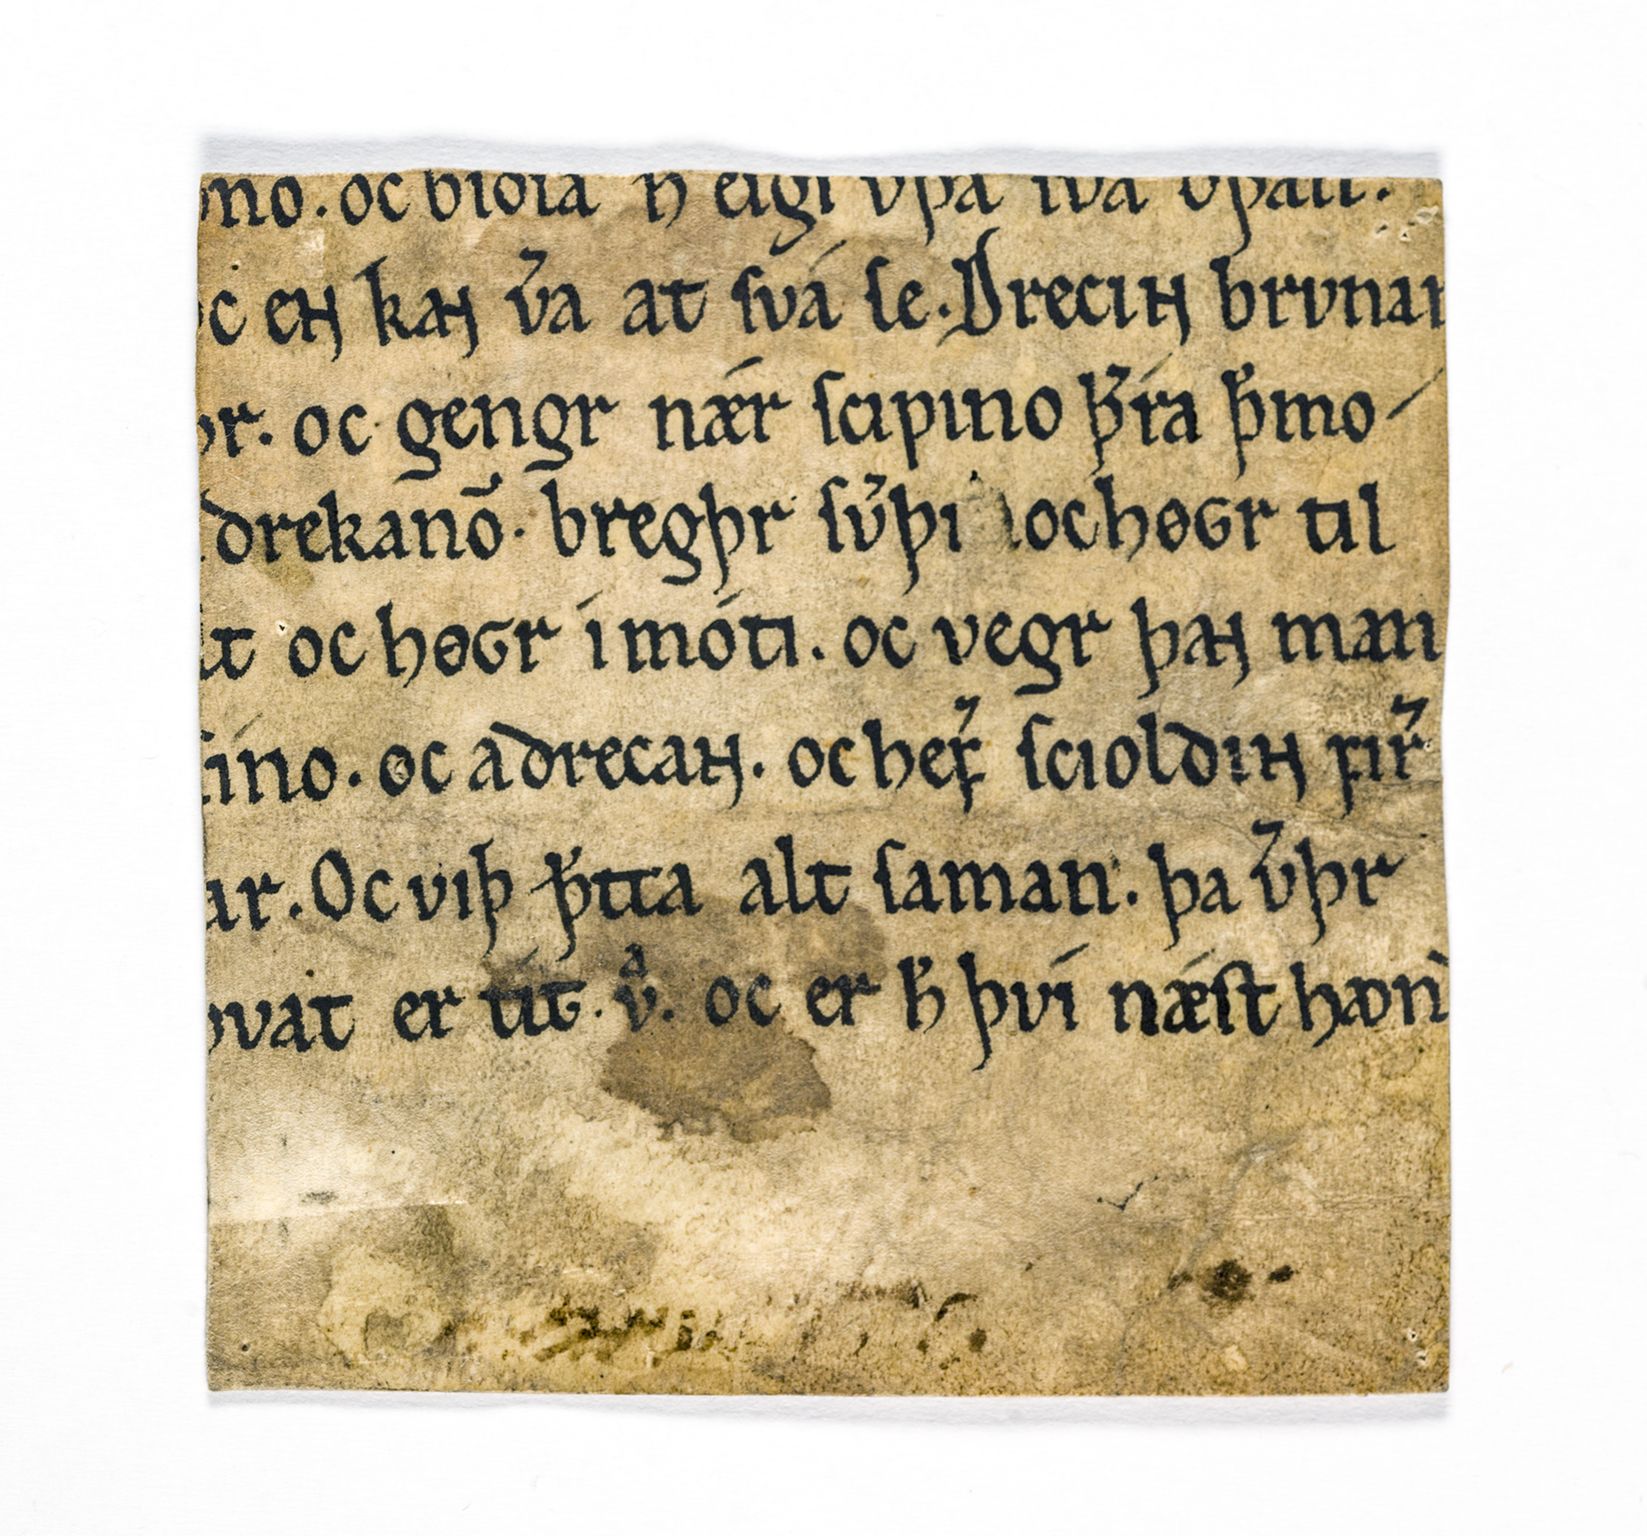 no. oc bioia h̅ eigi vpa sva
oc eɴ kaɴ v̓a at ſvá ſe. Dreciɴ brvnar
þr. oc gengr nǽr ſcipino þ̓ría þ̓mo
drekanō. breghþr ſv̓þi oc høɢr til
oc høɢr í móti. oc vegr þaɴ man
ſíno. oc a drecaɴ. oc hef̓ ſcioldiɴ fir̓
ar. Oc viþ þ̓tta alt ſaman. þa v̓þr
vát er títt. vͣ. oc er h̓ því nǽſt